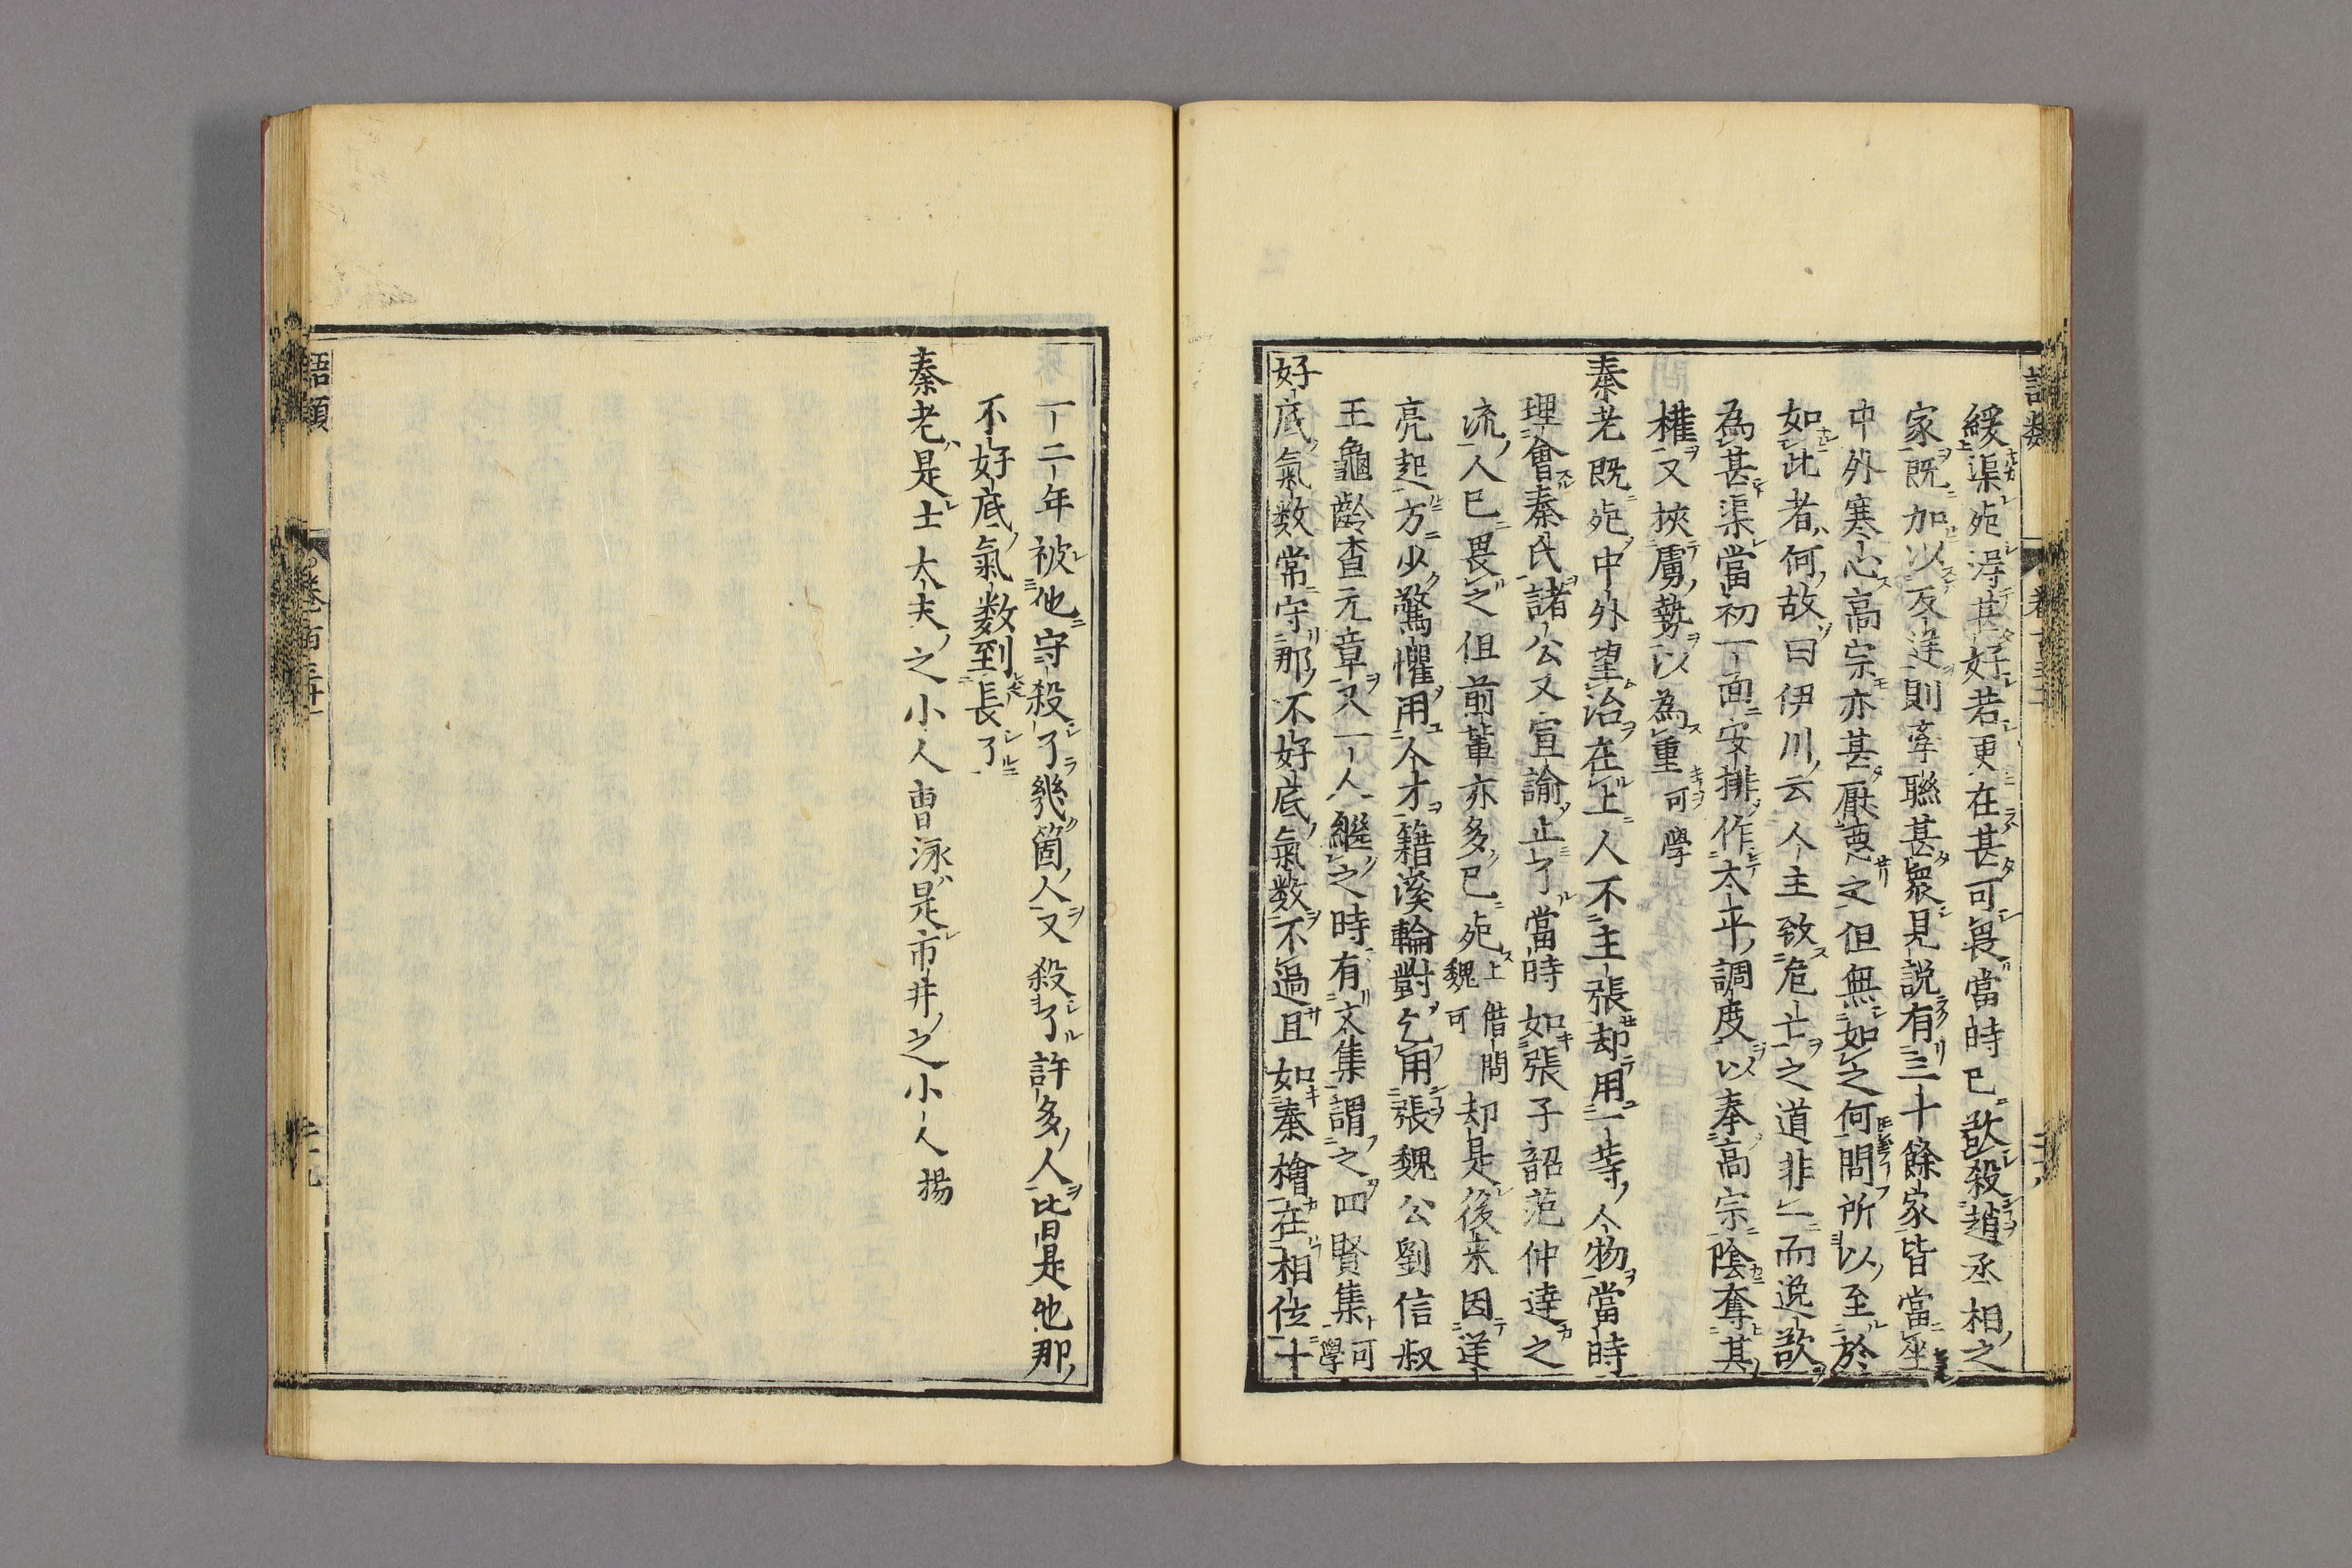 緩渠死得甚好若更在甚可畏當時已欲殺趙丞相之
家既加以反逆則牽聯甚衆見説有三十餘家皆當坐
中外寒心高宗亦甚厭惡之但無如之何問所以至於
如此者何故曰伊川云人主致危亡之道非一而逸欲
為甚渠當初一面安排作太平調度以奉高宗陰奪其
權又挾虜勢以為重可學
秦老既死中外望治在上人不主張却用一等人物當時
理會秦氏諸公又宣諭止了當時如張子韶范仲達之
流人已畏之但前輩亦多已死上借問魏可却是後来因逆
亮起方少驚懼用人才籍溪輪對乞用張魏公劉信叔
王龜齡查元章又一人繼之時有文集謂之四賢集可學
好底氣数常守那不好底氣数不過且如秦檜在相位十
一二年被他守殺了幾箇人又殺了許多人皆是他那
不好底氣数到長了
秦老是士大夫之小人曹泳是市井之小人揚
語類